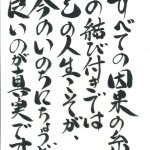 すべての因果の糸
の結び付きでは
己の人生こそが、
今のいのちにちょうど
良いのが真実です